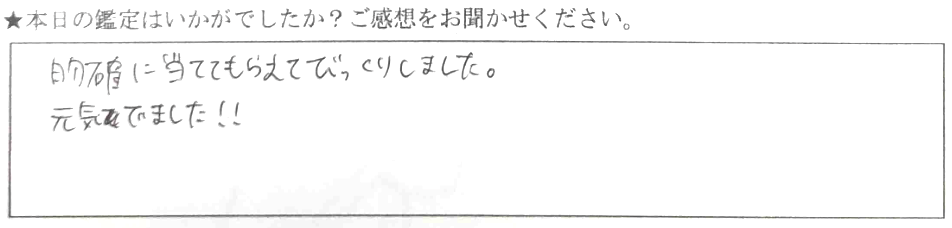 ★本日の鑑定はいかがでしたか？ご感想をお聞かせください。
的確に当ててもらえてびっくりしました。
元気でました！！